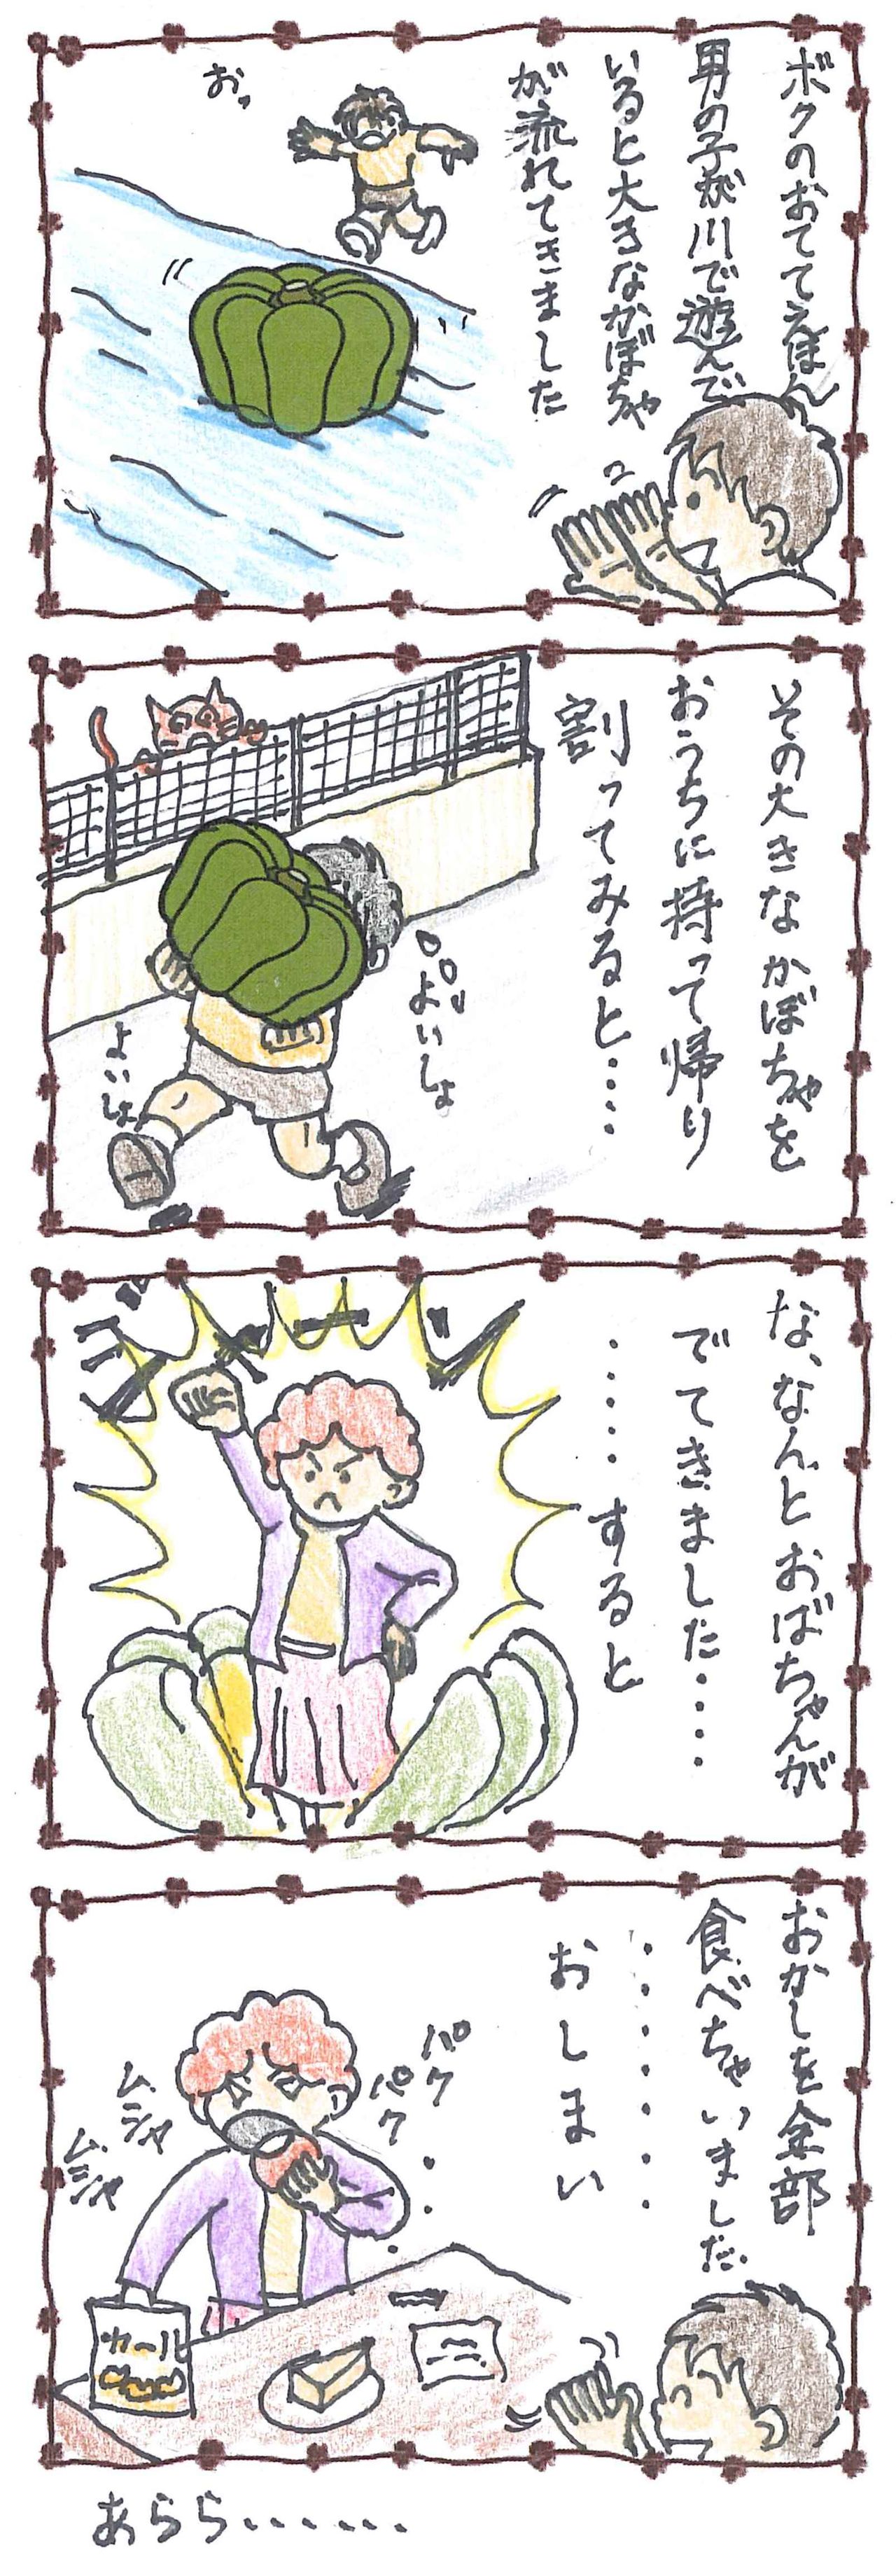 ボクのおててえほん
男の子が川で遊んで
いると大きなかぼちゃ
が流れてきました
おッ
その大きなかぼちゃを
おうちに持って帰り
割ってみると‥‥
よいしょ
よいしょ
な、なんとおばちゃんが
でてきました‥‥
‥‥‥すると
ジャーン
おかしを全部
食べちゃいました
‥‥‥‥
おしまい
パク
パク
ムシャ
ムシャ
カール
あらら‥‥‥